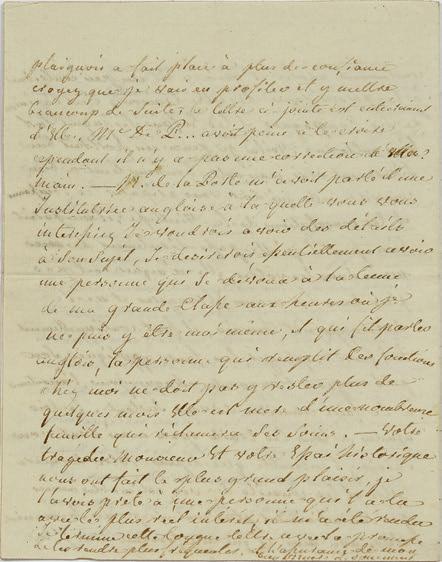 plaignois a fait place à plus de confiance
croyez que je vais en profiter et y mettre
beaucoup de suite, la lettre ci jointe est entierement
d'Elle, Mr De P... avoit peine à le croire
cependant il n'y a pas une correction de
main. — Mr. de la Porte m'avoit parlé d'une
Institutrice anglaise à la quelle vous vous
interessiez Je voudrois avoir des détails
à son sujet, Je desirerois essentiellement avoir
une personne qui se dévoua à la tenue
de ma grande Classe aux heures où je
ne puis y être moi meme, et qui fit parler
anglois, la personne qui remplit ces fonctions
chez moi ne doit pas y rester plus de
quelques mois Elle est mere d'une nombreuse
famille qui réclamera ses soins — Votre
tragedie Monsieur Et votre Essai historique
nous ont fait le plus grand plaisir je
l'avois prêté à une personne qui l'a lu
avec le plus réel intéret, il m'a été rendu
Je termine cette longue lettre
de les rendre plus L'assurance de mon